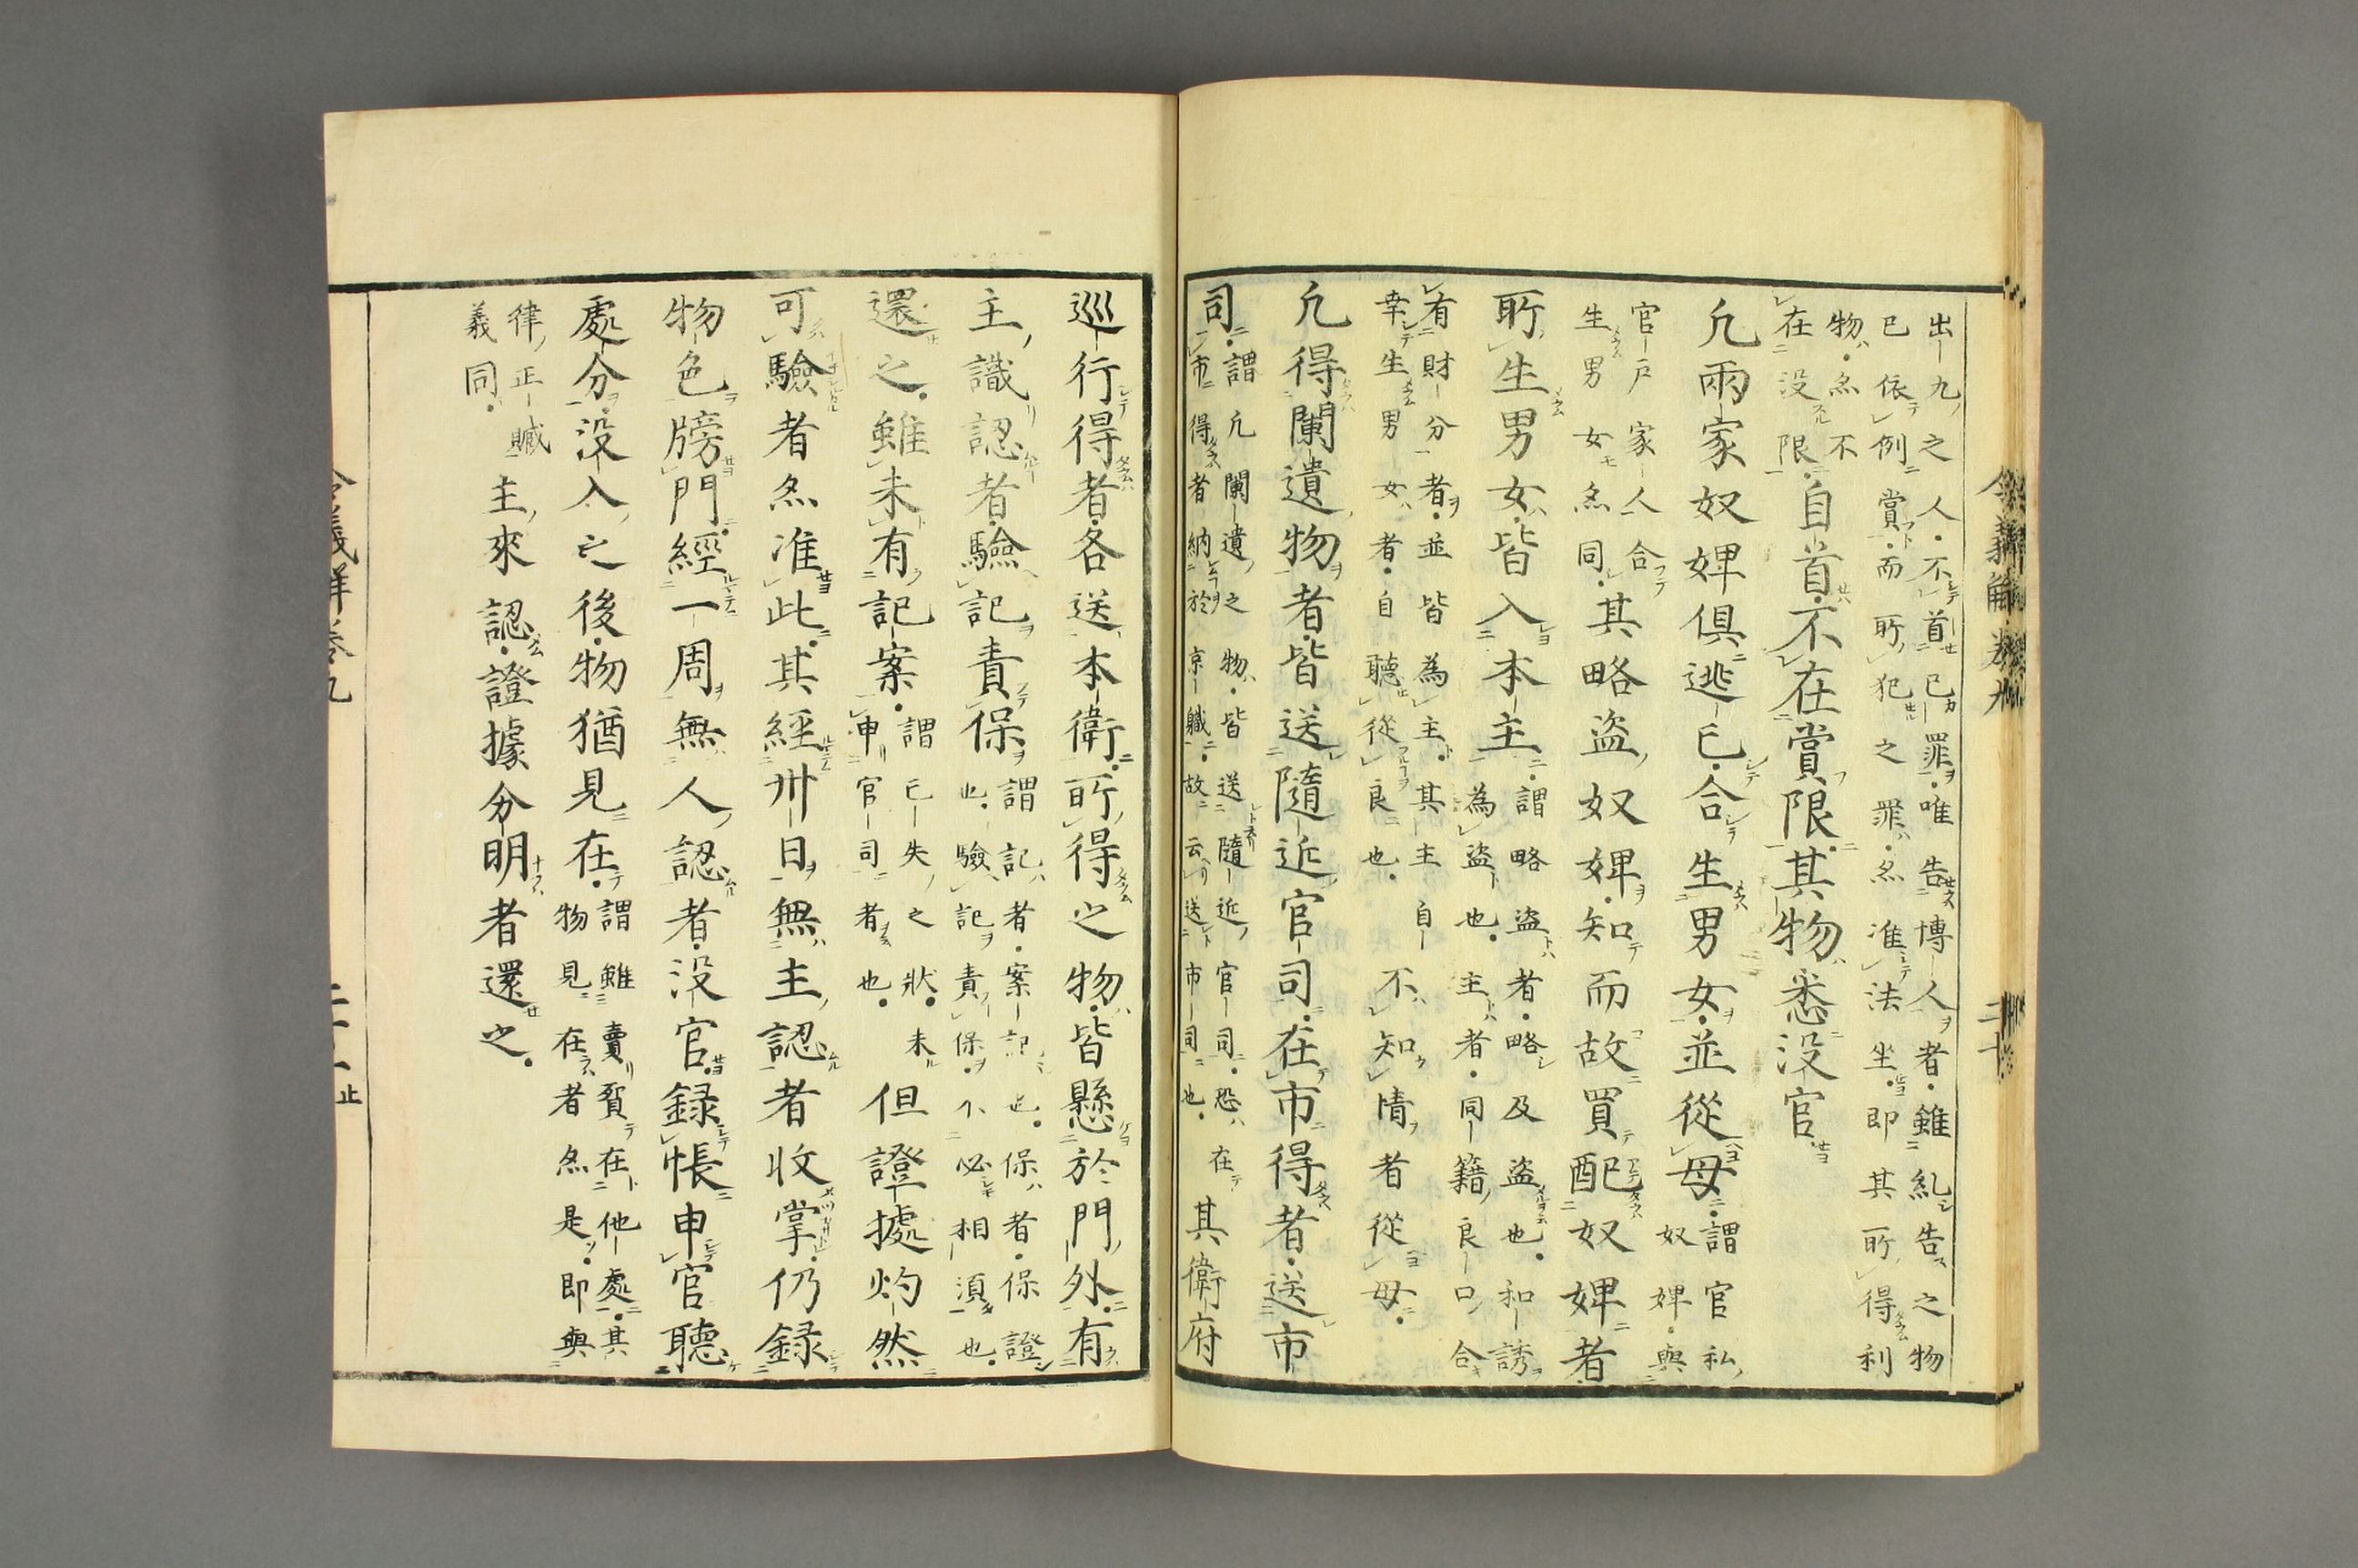 出九之人不首已罪唯告博人者雖糺告之物
已依例賞而所犯之罪亦准法坐即其所得利
物亦不
在没限自首不在賞限其物悉没官
凡兩家奴婢俱逃亡合生男女並從母謂官私
奴婢與
官戸家人合
生男女亦同其略盗奴婢知而故買配奴婢者
所生男女皆入本主謂略盗者略及盗也和誘
為盗也主者同籍良口合
有財分者並皆為主其主自不知情者從母
幸生男女者自聽從良也
凡得闌遺物者皆送隨近官司在市得者送市
司謂凡闌遺之物皆送隨近官司恐在其衛府
市得者納於京職故云送市司也
巡行得者各送本衛所得之物皆懸於門外有
主識認者驗記責保謂記者案記也保者保證
也驗記責保不必相須也
還之雖未有記案謂亡失之狀未但證據灼然
申官司者也
可驗者亦准此其經卅日無主認者收掌仍録
物色牓門經一周無人認者没官録帳申官聽
處分没入之後物猶見在謂雖賣貿在他處其
物見在者亦是即與
律正贓
義同主來認證據分明者還之
令義解卷九
二十